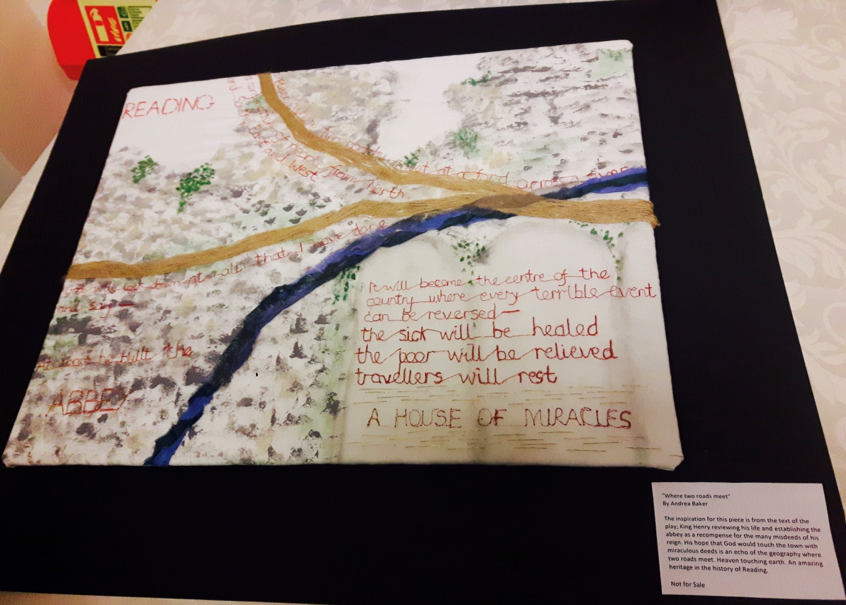 READING
from North
and west
that I have done
and say—
the
ABBEY
It will become the centre of the
country where every terrible event
can be reversed—
the sick will be healed
the poor will be relieved
travellers will rest
A HOUSE OF MIRACLES
"Where two roads meet"
By Andrea Baker
The inspiration for this piece is from the text of the
play; King Henry reviewing his life and establishing the
abbey as a recompense for the many misdeeds of his
reign. His hope that God would touch the town with
miraculous deeds is an echo of the geography where
two roads meet. Heaven touching earth. An amazing
heritage in the history of Reading.
Not for Sale